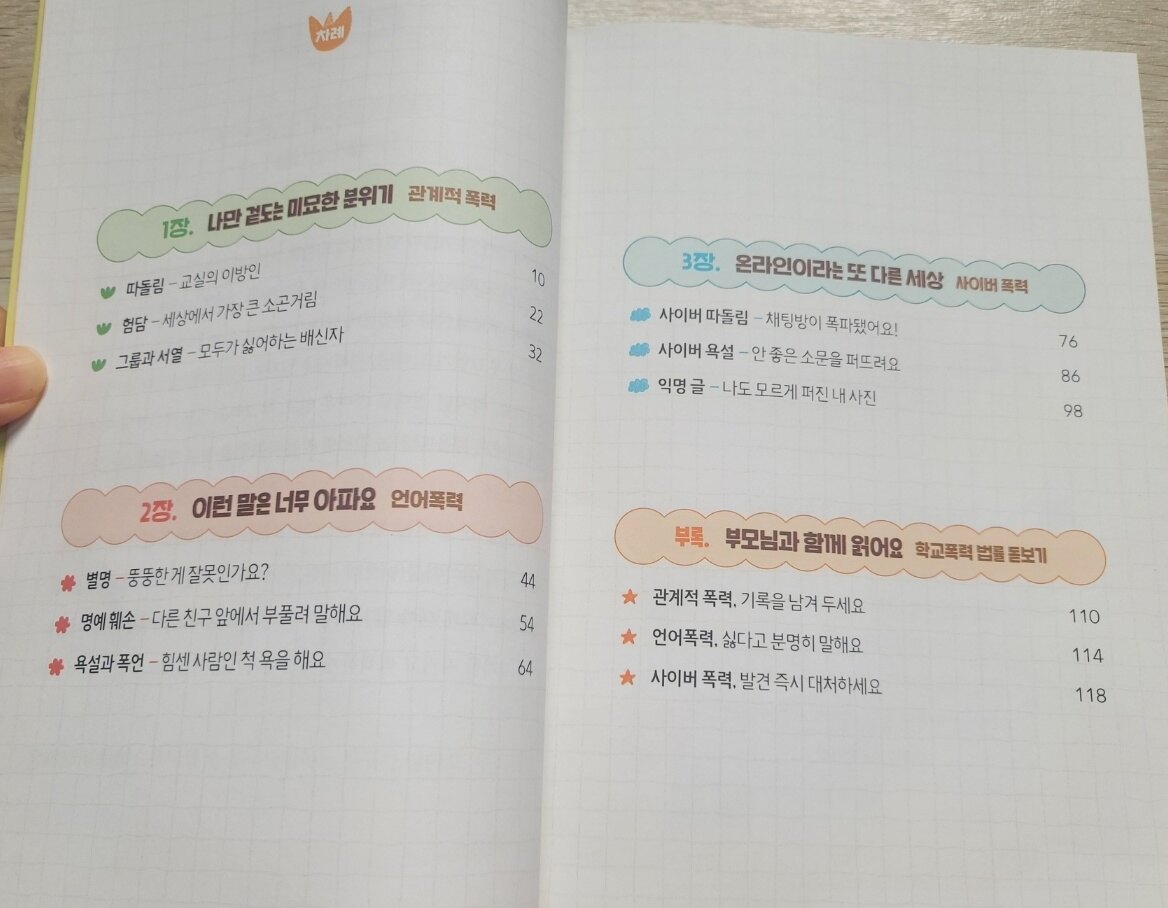 차례
1장. 나만 겉도는 미묘한 분위기 관계적 폭력
따돌림 – 교실의 이방인 10
험담 – 세상에서 가장 큰 소곤거림 22
그룹과 서열 – 모두가 싫어하는 배신자 32
2장. 이런 말은 너무 아파요 언어폭력
별명 – 뚱뚱한 게 잘못인가요? 44
명예 훼손 – 다른 친구 앞에서 부풀려 말해요 54
욕설과 폭언 – 힘센 사람인 척 욕을 해요 64
3장. 온라인이라는 또 다른 세상 사이버 폭력
사이버 따돌림 – 채팅방이 폭파됐어요! 76
사이버 욕설 – 안 좋은 소문을 퍼뜨려요 86
익명 글 – 나도 모르게 퍼진 내 사진 98
부록. 부모님과 함께 읽어요 학교폭력 법률 돋보기
관계적 폭력, 기록을 남겨 두세요 110
언어폭력, 싫다고 분명히 말해요 114
사이버 폭력, 발견 즉시 대처하세요 118